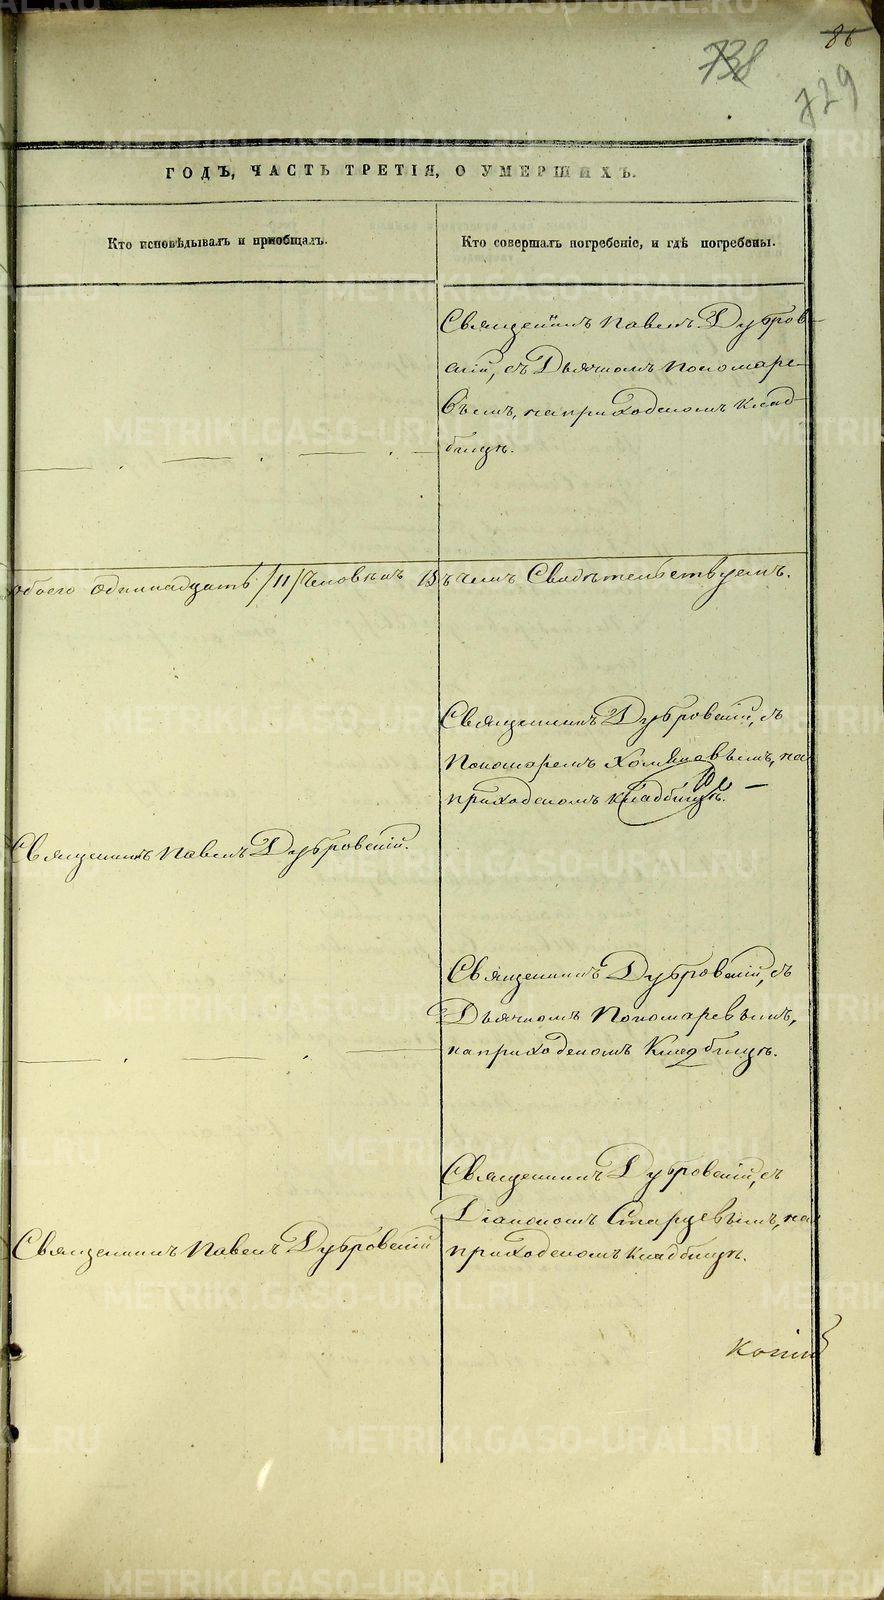 86
738
729
ГОДЪ, ЧАСТЬ ТРЕТІЯ, О УМЕРШИХЪ.
Кто исповѣдывалъ и пріобщалъ.
Кто совершалъ погребеніе, и гдѣ погребены.
Священникъ Павелъ Дубров-
скій, съ Дьячкомъ Пономаре-
вымъ, на приходскомъ клад-
бищѣ.
обоего одиннадцать /11/ человѣкъ Въ чемъ Свидѣтельствуемъ.
Священникъ Дубровскій, съ
Пономаремъ Хомяковымъ, на
приходскомъ кладбищѣ.
Священникъ Павелъ Дубровскій.
Священникъ Дубровскій, съ
Дьячкомъ Пономаревымъ,
на приходскомъ Кладбищѣ.
Священникъ Дубровскій, съ
Діакономъ Старцевымъ, на
Священникъ Павелъ Дубровскій
приходскомъ кладбищѣ.
METRIKI.GASO-URAL.RU